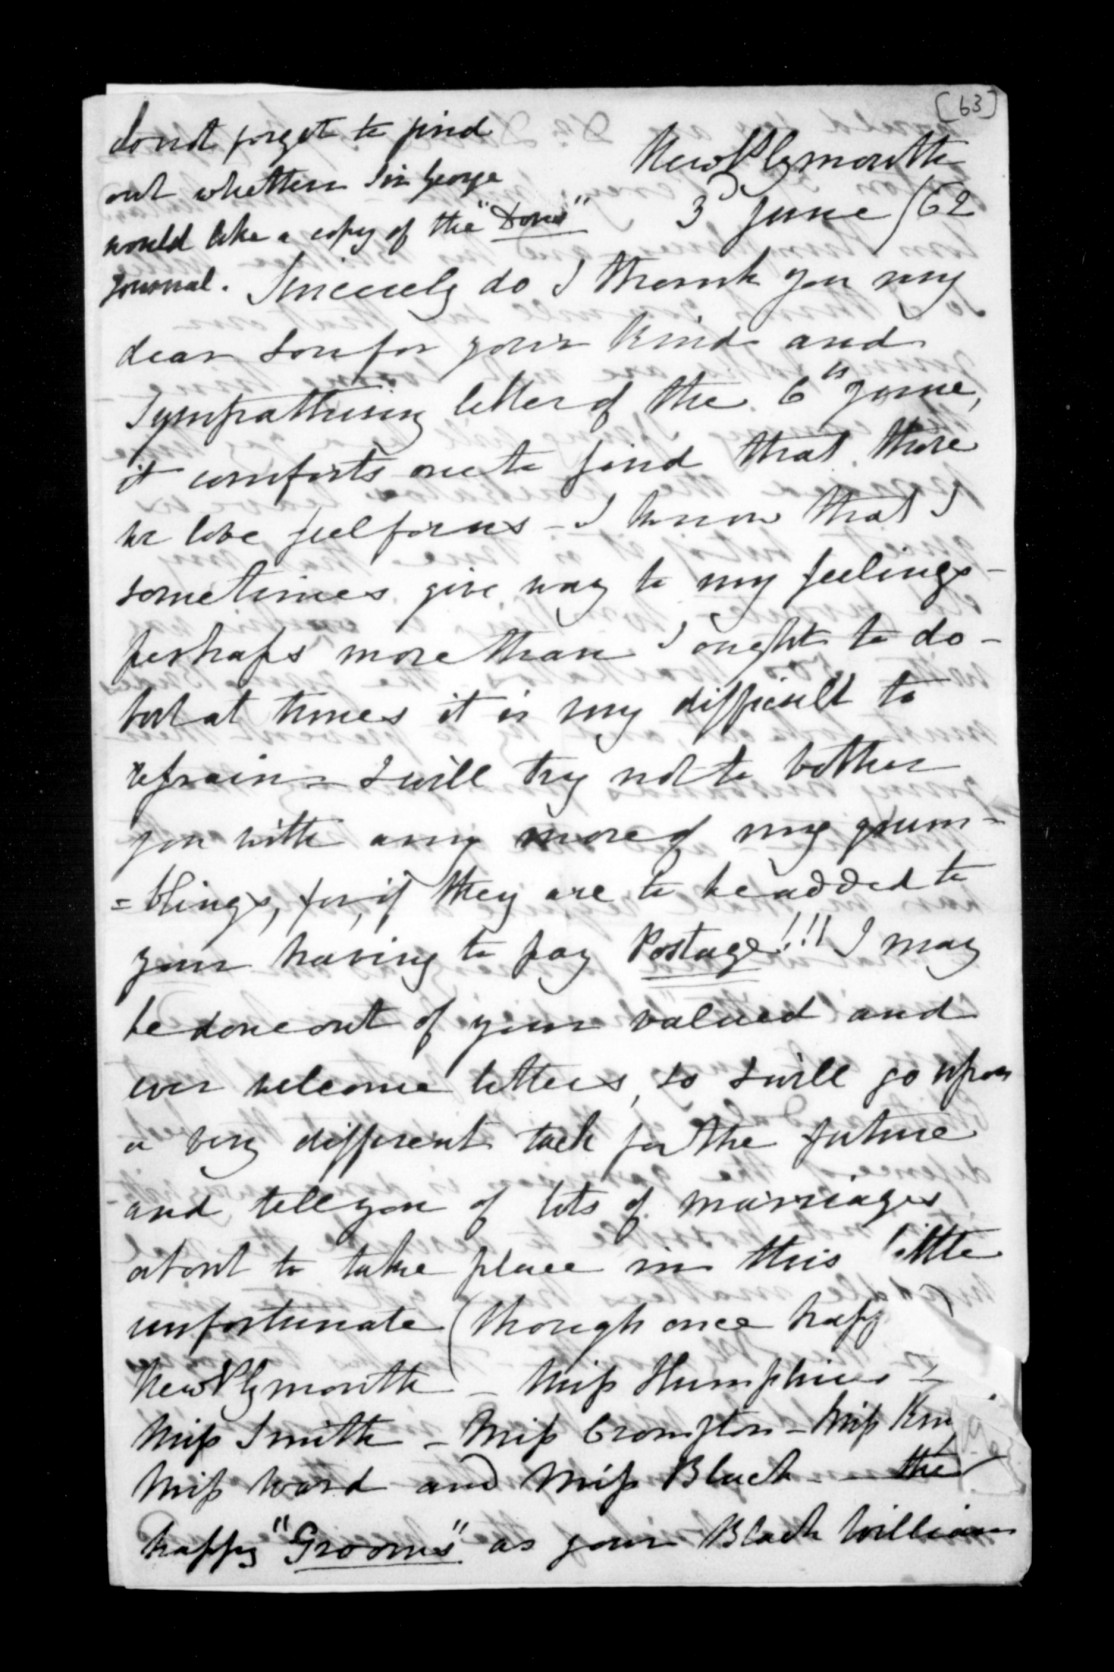 [63]
do not forget to find
out whether Sir George
would like a copy of the "Dove's"
journal.
New Plymouth
3d June /62
Sincerely do I thank you my
dear Son for your kind and
Sympathising letter of the 6th June,
it comforts one to find that those
we love feel for us - I know that I
sometimes give way to my feelings -
perhaps more than I ought to do -
but at times it is very difficult to
refrain - I will try not to bother
you with any more of my grum-
=blings, for, if they are to be added to
your having to pay Postage!!! I may
be done out of your valued and
ever welcome letters, so I will go upon
a very different tack for the future
and tell you of lots of marriages
about to take place in this little
unfortunate (though once happ
New Plymouth - Miss Humphries -
Miss Smith - Miss Crompton - Miss King
Miss Ward and Miss Black - the
happy "Grooms" as your Black William